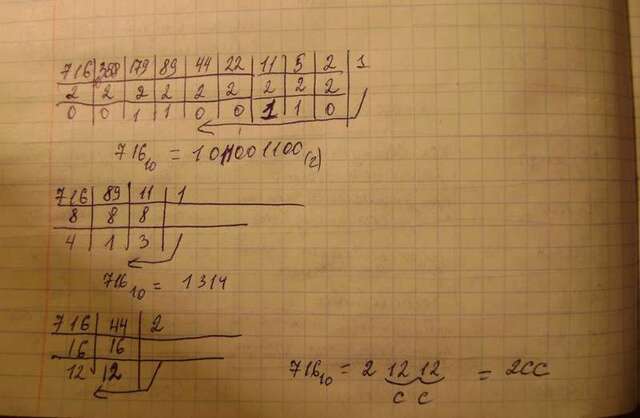 716 358 179 89 44 22 11 5 2 1
2 2 2 2 2 2 2 2 2
0 0 1 1 0 0 1 1 0
716₁₀ = 1011001100(2)
716 89 11 1
8 8 8
4 1 3
716₁₀ = 1314
716 44 2
16 16
12 12
716₁₀ = 2 12 12 = 2CC
C C